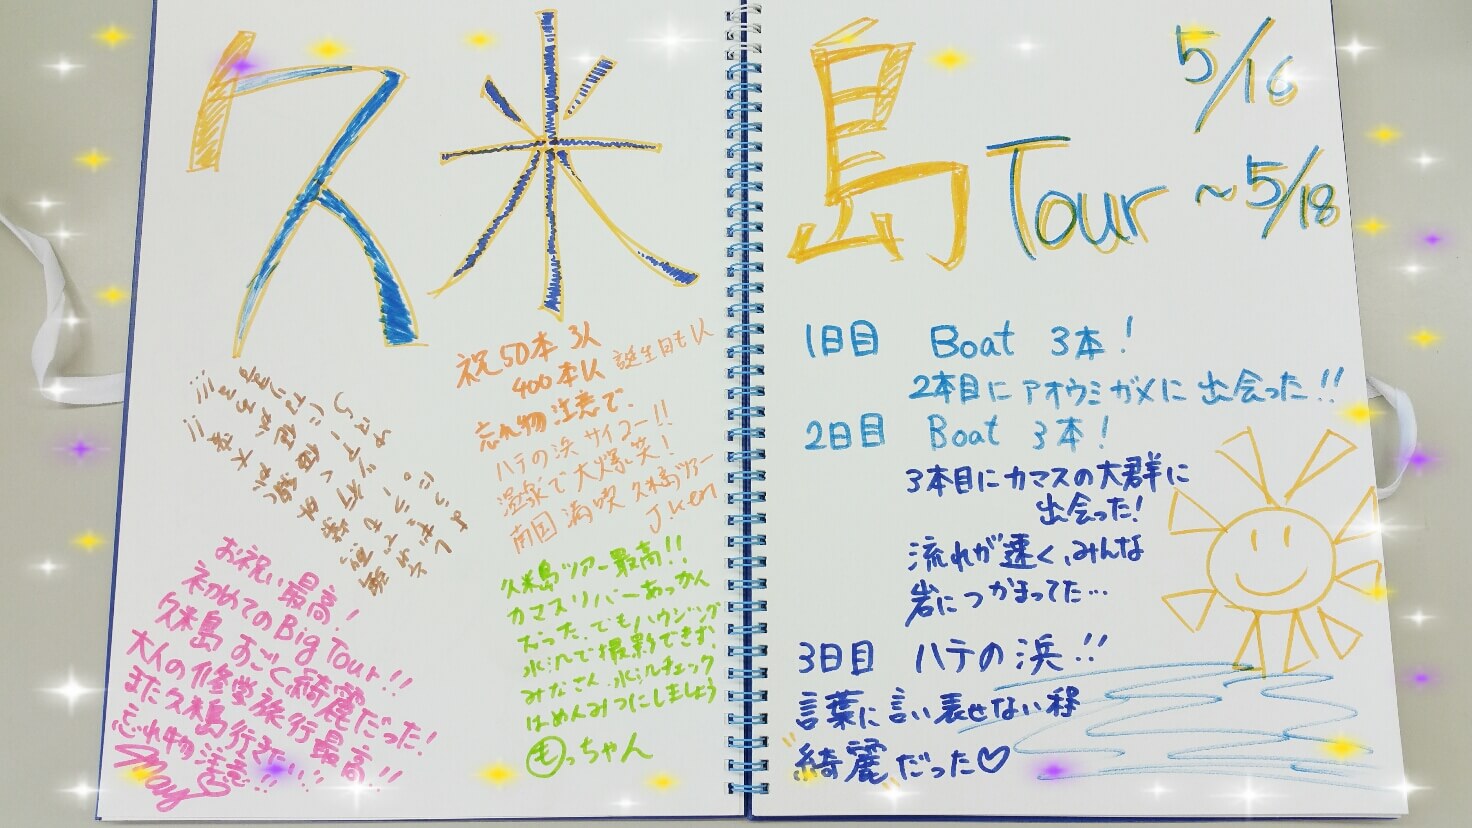 久米
島 Tour 5/16
~5/18
祝50本 3人
400本1人 誕生日も1人
忘れ物注意で、
ハテの浜 サイコー!!
温泉で大爆笑!
南国満喫 久米島ツアー
J.Ken
お祝い最高!
初めてのBig Tour!!
久米島 すごく綺麗だった!
大人の修学旅行最高!!
また久米島行きたい!!
忘れ物注意!!
May
久米島ツアー最高!!
カマスリバーあっかん
だった。でもハウジング
水没で撮影できず、
みなさん、水没チェック
はめんみつにしましょう
もっちゃん
1日目 Boat 3本!
2本目にアオウミガメに出会った!!
2日目 Boat 3本!
3本目にカマスの大群に
出会った!
流れが速く、みんな
岩につかまってた…
3日目 ハテの浜!!
言葉に言い表せない程
綺麗だった♡